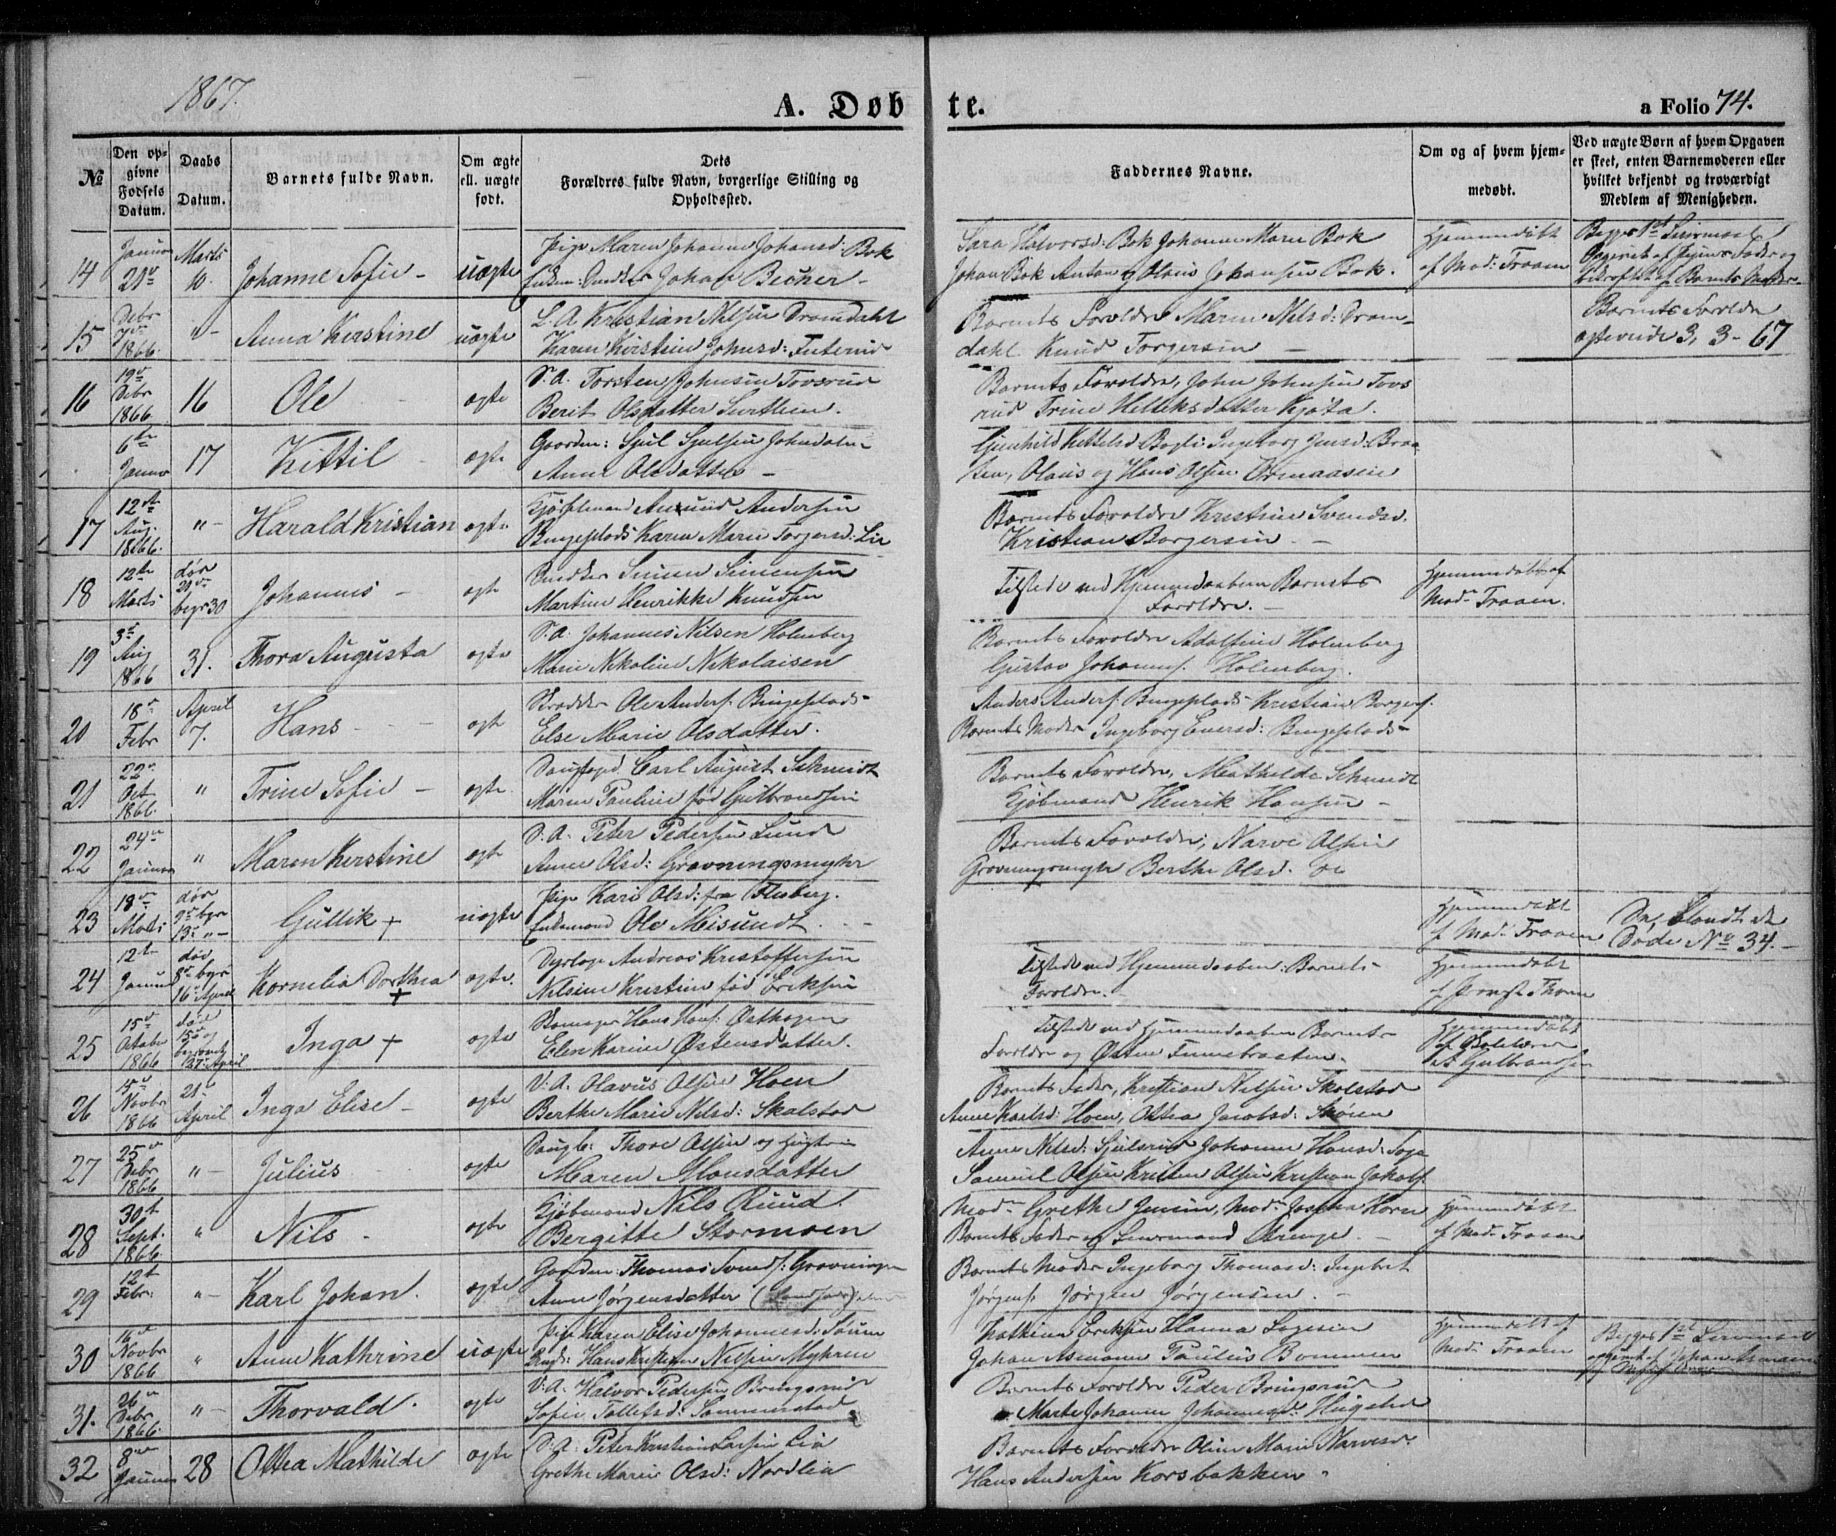 1867.
A. Døbte.
a Folio 74.
№
Den opgivne Fødsels Datum.
Daabs Datum.
Barnets fulde Navn.
Om ægte ell. uægte født.
Dets Forældres fulde Navn, borgerlige Stilling og Opholdssted.
Faddernes Navne.
Om og af hvem hjemmedøbt.
Ved uægte Børn af hvem Opgaven er skeet, enten Barnemoderen eller hvilket bekjendt og troværdigt Medlem af Menigheden.
14 Januar 21de Marts 10. Johanne Sofie - uægte
Pige Maren Johanne Johansd: Bok
Johan Becher -
Sara Halvorsd: Bok Johanne Marie Bok
Johan Bok Anton og Olaus Johansen Bok.
Hjemmedøbt
af Mad: Traaen
Begges 1st Leiermaal
15 Debr 7de 1866 "- Anna Kirstine uægte
L. A. Kristian Nilsen Dramdahl
Karen Kirstine Johnsd:
Barnets Forældre Maren Nilsd: Dramdahl Knud Torgersen -
Barnets Forældre
ægteviede 3, 3 - 67
16 19de Debr 1866 16 Ole ægte
S. A. Torsten Johnsen Tovsrud
Berit Olsdatter
Barnets Forældre, John Johnsen Tovsrud Trine Helleksdatter Kjøta.
6te Januar 17 Kittil ægte
Gaardm: Sjul Sjulsen Johndalen
Anne Olsdatter -
Gunhild Kittelsd Ingeborg Jensd: Braaten, Olaus og Hans Olsen Ormaasen
17 12te Aug. 1866. "- Harald Kristian ægte
Kjøbmand Amund Andersen
Bingeplads Karen Marie Torgersd: Lie
Barnets Forældre Kristine Svendsd.
Kristian Borgersen. -
18 12te Marts dør 21de begr 30 Johannes - ægte
Snedker Simen Simensen
Martine Henrikke Knudsen
Tilstede ved Hjemmedaaben Barnets
Forældre. -
Hjemmedøbt af
Mad: Traaen.
19 3de Aug 1866 31. Thora Augusta ægte
S. A. Johannes Nilsen Holmberg
Marie Nikoline Nikolaisen
Barnets Forældre Adolfine Holmberg
Gustav Johannes. Holmberg.
20 18de Febr April 7. Hans - ægte
Skrædder Ole Anders. Bingeplads -
Else Marie Olsdatter.
Anders Anders. Bingeplads Kristian Borgers.
Barnets Moder Ingeborg Eversd: Bingeplads -
21 22de Oct 1866. " Trine Sofie - ægte
Saugfoged Carl August Schmidt
Maren Pauline fød Gulbrandsen
Barnets Forældre, Mathilde Schmidt
Kjøbmand Henrik Hansen -
22 24de Januar " Maren Kirstine ægte
S. A. Peter Pedersen Lund
Anne Olsd: Gravningsmyhr
Barnets Forældre, Narve Olsen
Gravningsmyhr Berthe Olsd.
23 18de Marts dør begr 13 "- Gullik + uægte
Pige Kari Olsd: fra Flesberg.
Enkemand Ole Meisundt. -
Hjemmedøbt
af Mad: Traaen
Se, blandt de
Døde No 34. -
24 12te Januar død 8de begr 16 April Kornelia Dorthea + ægte.
Dyrlæge Andreas Kristoffersen
Nilsine Kristine fød Eriksen
Tilstede ved Hjemmedaaben: Barnets
Forældre. -
Hjemmedøbt
25 15de Octobr 1866 død 15de og begravet 27 April Inga + ægte
Skomager Hans Hans: Østhagen
Elen Karine Østensdatter.
Tilstede ved Hjemmedaaben Barnets
Forældre og Østen Finnebraaten.
Hjemmedøbt
Gulbrandsen
26 15de Novbr 1866 21de April Inga Elise - ægte
V. A. Olavus Olsen Hoen
Berthe Marie Nilsd: Skalstad
Barnets Fader, Kristian Nilsen Skalstad
Anne Karlsd: Hoen, Othea Jacobsd: Skøien
27 25de Debr 1866 "- Julius ægte
Saugb: Thore Olsen og Hustru
Maren Monsdatter
Anne Nilsd: Sjulsrud Johanne Hansd:
Samuel Olsen Kristen Olsen Kristian Jakobs
28 30te Sept. 1866. " Nils - ægte
Kjøbmand Nils Ruud.
Bergitte Stormoen
Mad. Grethe Jensen, Mad. Josefa Horn
Barnets Fader og Lensmand Strenge. -
Hjemmedøbt
af Mad. Traaen
29 12te Febr: "- Karl Johan. ægte
Gaardm: Thomas Svends: Gravningen
Anne Jørgensdatter
Barnets Moder Ingeborg Thomasd: Ingebret
Jørgens. Jørgen Jørgensen. -
30 16de Novbr 1866 " Anne Kathrine uægte
Pige Karen Elise Johannesd:
Hans Kristian Nilsen Myhren
Eriksen Hanna
Johan Asmann Paulus Bommen
Hjemmedøbt af
Mad: Traaen
Begges 1st Leiermaal
opgivet af Johan Asmann
31. 26de Debr 1866. "- Thorvald. ægte
V. A. Halvor Pedersen Bringsrud
Sofie Tollefsd: Sommerstad
Barnets Forældre Peder Bringsrud
Marte Johanne Johannesd. Hugsted
32 8de Januar 28 Othea Mathilde ægte
S. A. Peter Kristian Larsen Lia
Grethe Marie Olsd: Nordlia
Barnets Forældre Oline Marie Narvesd.
Hans Andersen Korsbakken.